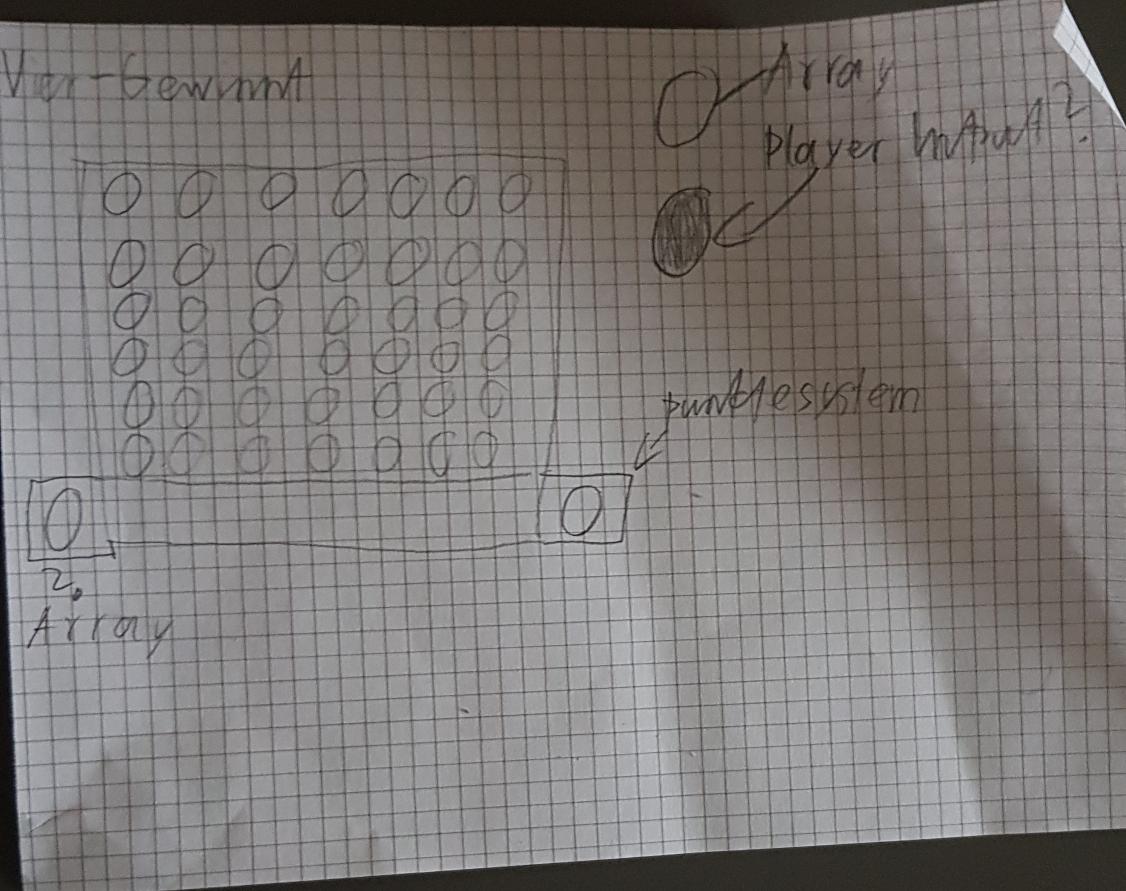 Vier-Gewinnt
Array
player Intput?
punktesystem
0
0
2.
Array